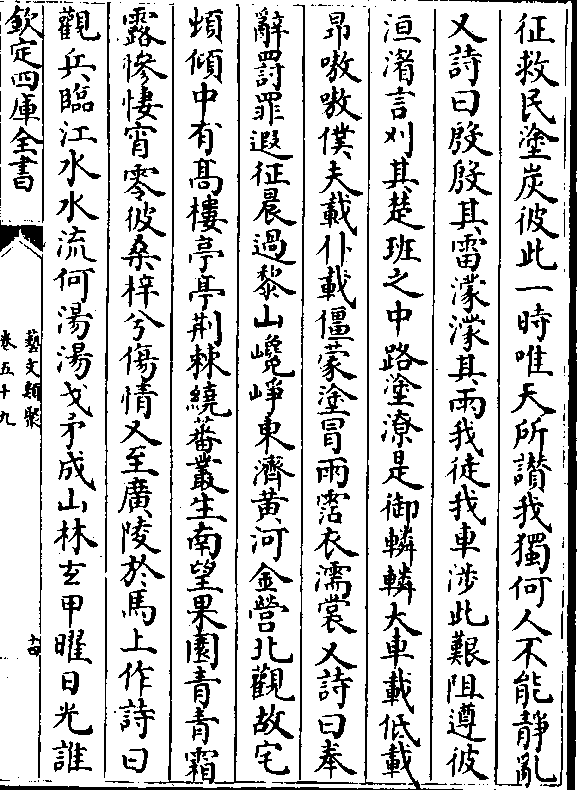 征救民塗炭彼此一時唯天所讃我獨何人不能靜亂
又詩曰殷殷其雷濛濛其雨我徒我車涉此艱阻遵彼
洹湄言刈其楚班之中路塗潦是御轔轔大車載低載
昂嗷嗷僕夫載仆載僵蒙塗冒雨霑衣濡裳又詩曰奉
辭罰罪遐征晨過黎山巉崢東濟黄河金營北觀故宅
頓傾中有髙樓亭亭荆棘繞蕃叢生南望果園青青霜
露慘悽宵零彼桑梓兮傷情又至廣陵於馬上作詩曰
觀兵臨江水水流何湯湯戈矛成山林𤣥甲曜日光誰
欽定四庫全書
藝文類聚
卷五十九
十四